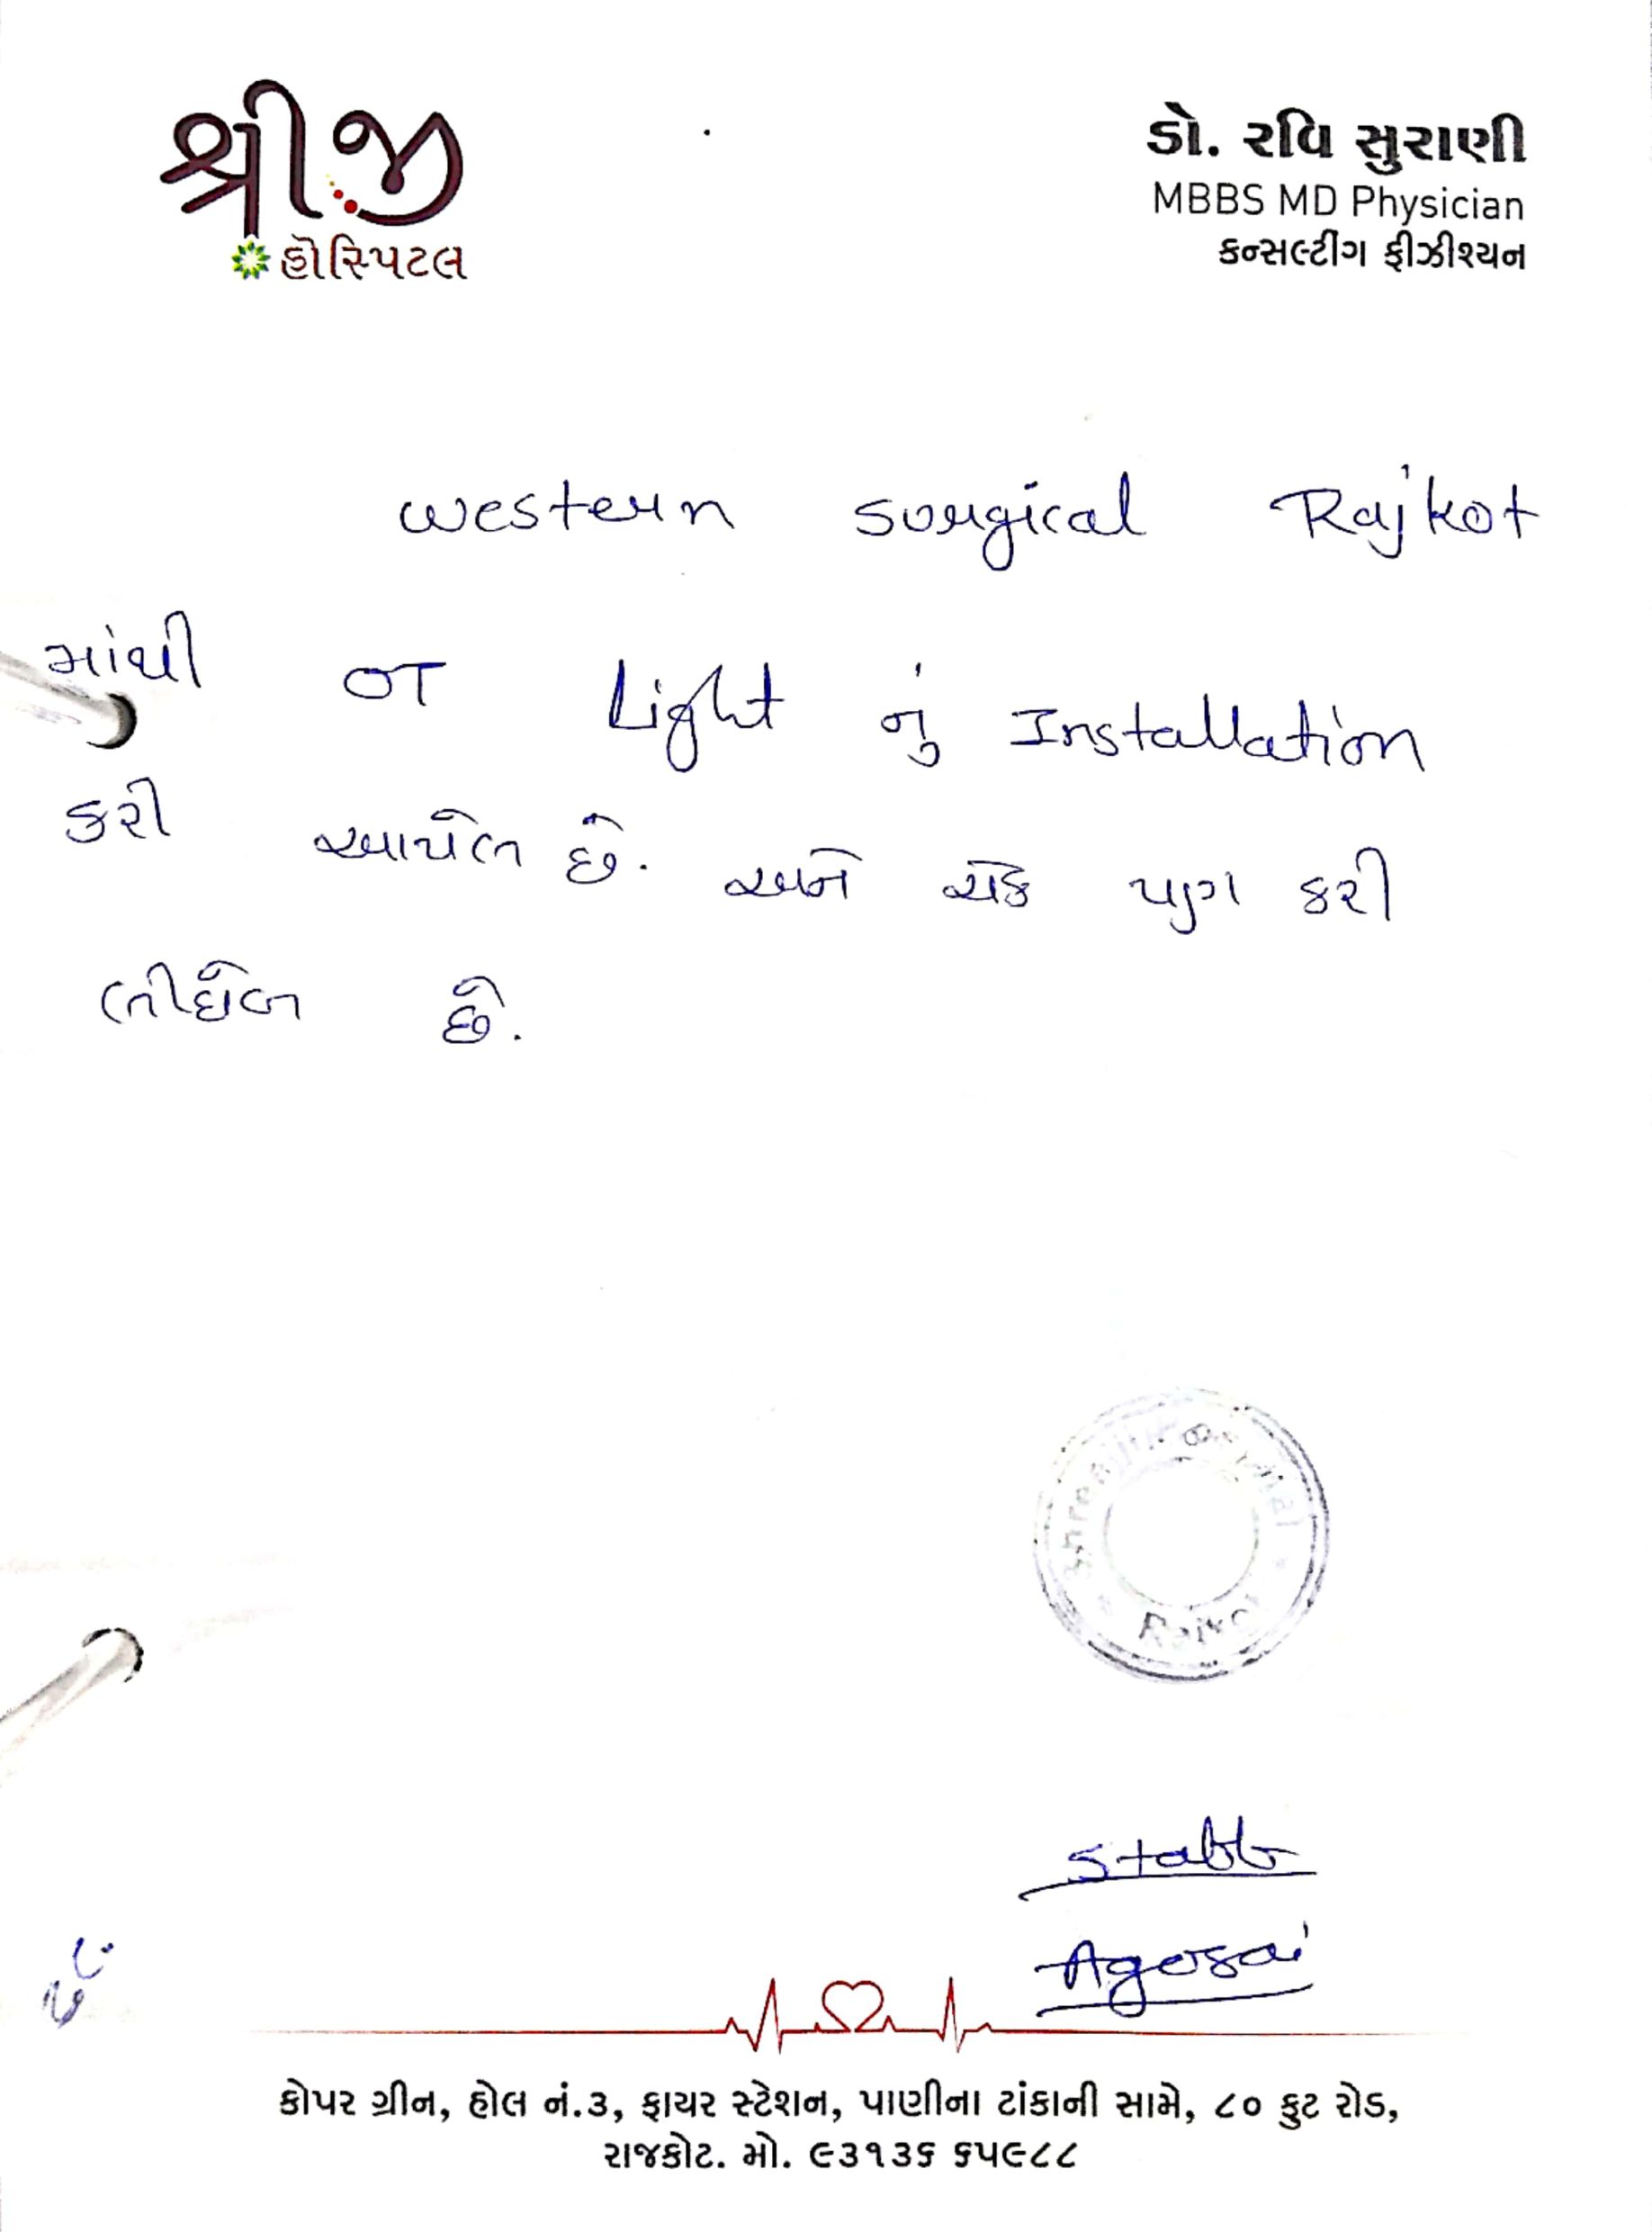 શ્રીજી
હોસ્પિટલ
ડો. રવિ સુરાણી
MBBS MD Physician
કન્સલ્ટીંગ ફીઝીશ્યન
western surgical Rajkot
માંથી OT Light નું Installation
કરી આપેલ છે. અને ચેક પણ કરી
લીધેલ છે.
Shreeji Hospital
Rajkot
Staff
Agosai
કોપર ગ્રીન, હોલ નં.૩, ફાયર સ્ટેશન, પાણીના ટાંકાની સામે, ૮૦ ફુટ રોડ,
રાજકોટ. મો. ૯૩૧૩૬ ૬૫૯૮૮